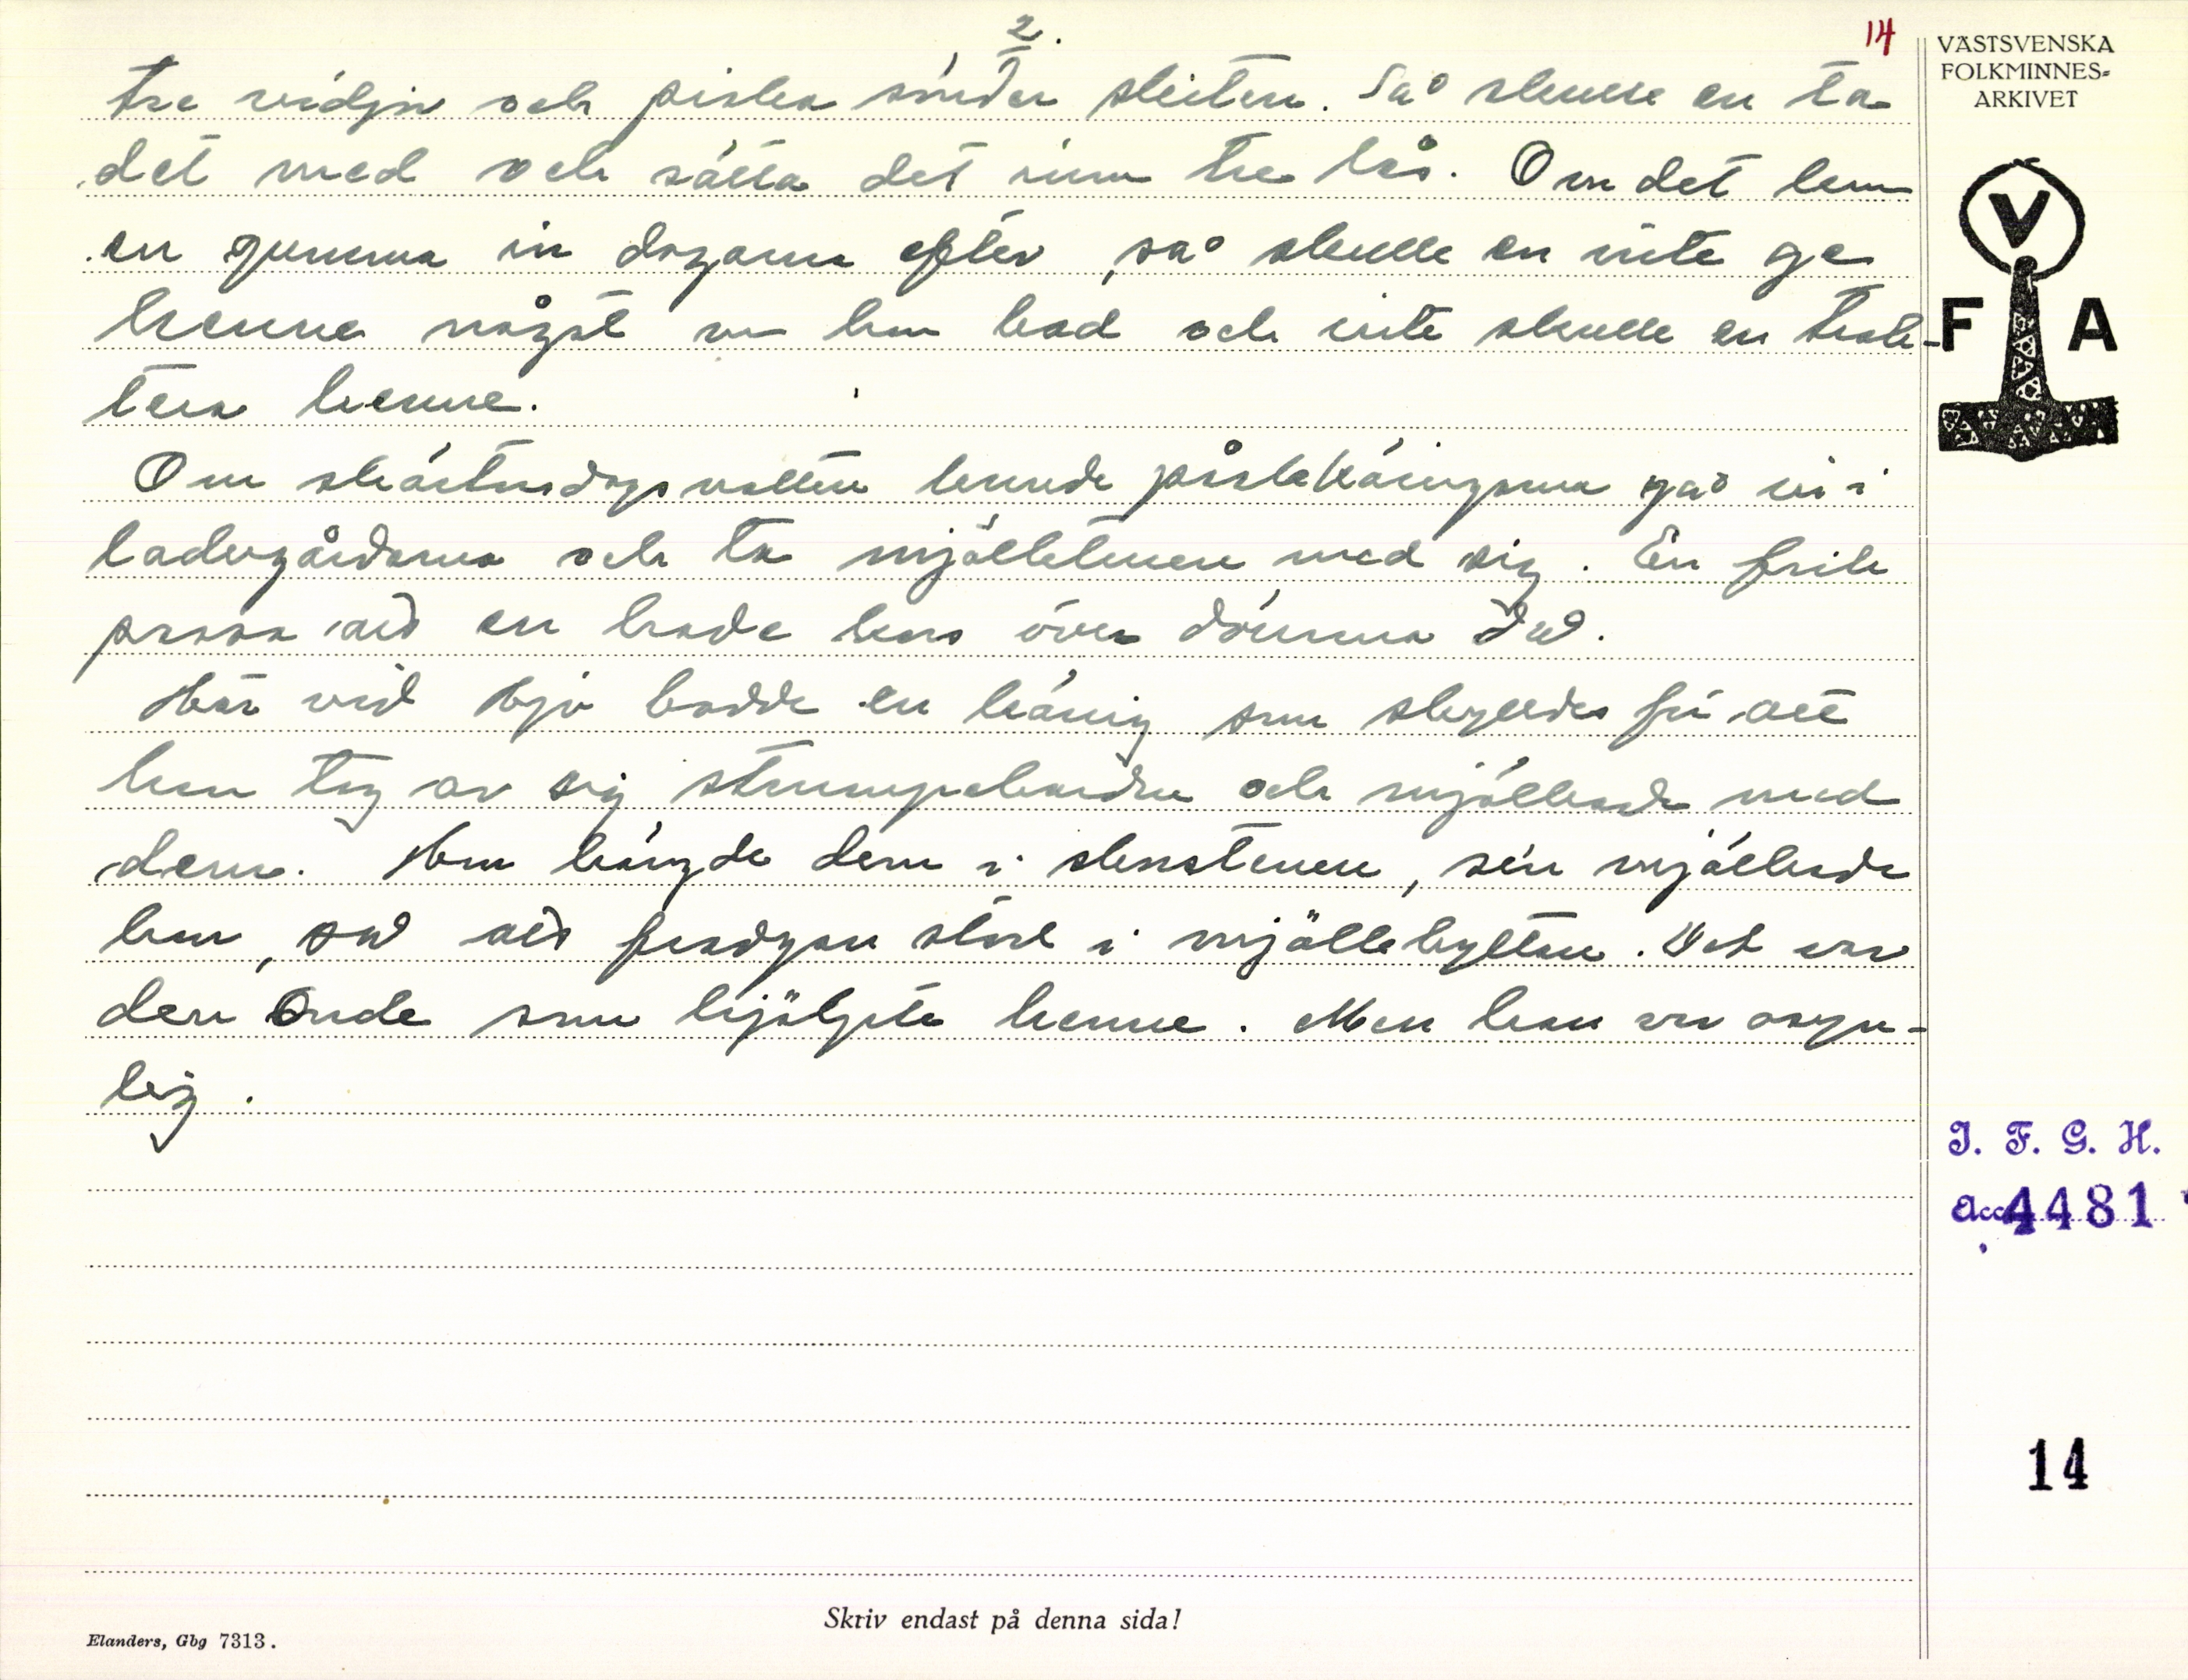 2.
14
tre vidjor och piska sönder skiten. Så skulle en ta
det med och sätta det inom tre lås. Om det kom
en gumma in dagarna efter, så skulle en inte ge
henne något om hon bad och inte skulle en trak-
tera henne.
Om skärtorsdagsnatten kunde påskkäringarna gå in i
ladugårdarna och ta mjölklaven med sig. En fick
passa att en hade kors över dörrarna då.
Här vid Hjo bodde en käring som skylldes för att
hon tog av sig strumpebanden och mjölkade med
dem. Hon hängde dem i skorstenen, sen mjölkade
hon, så att fradgan stod i mjölkebyttan. Det var
den Onde som hjälpte henne. Men hon var osyn-
lig.
VÄSTSVENSKA
FOLKMINNES-
ARKIVET
V
F A
I. F. G. H.
Acc 4481
14
Skriv endast på denna sida!
Elanders, Gbg 7313.